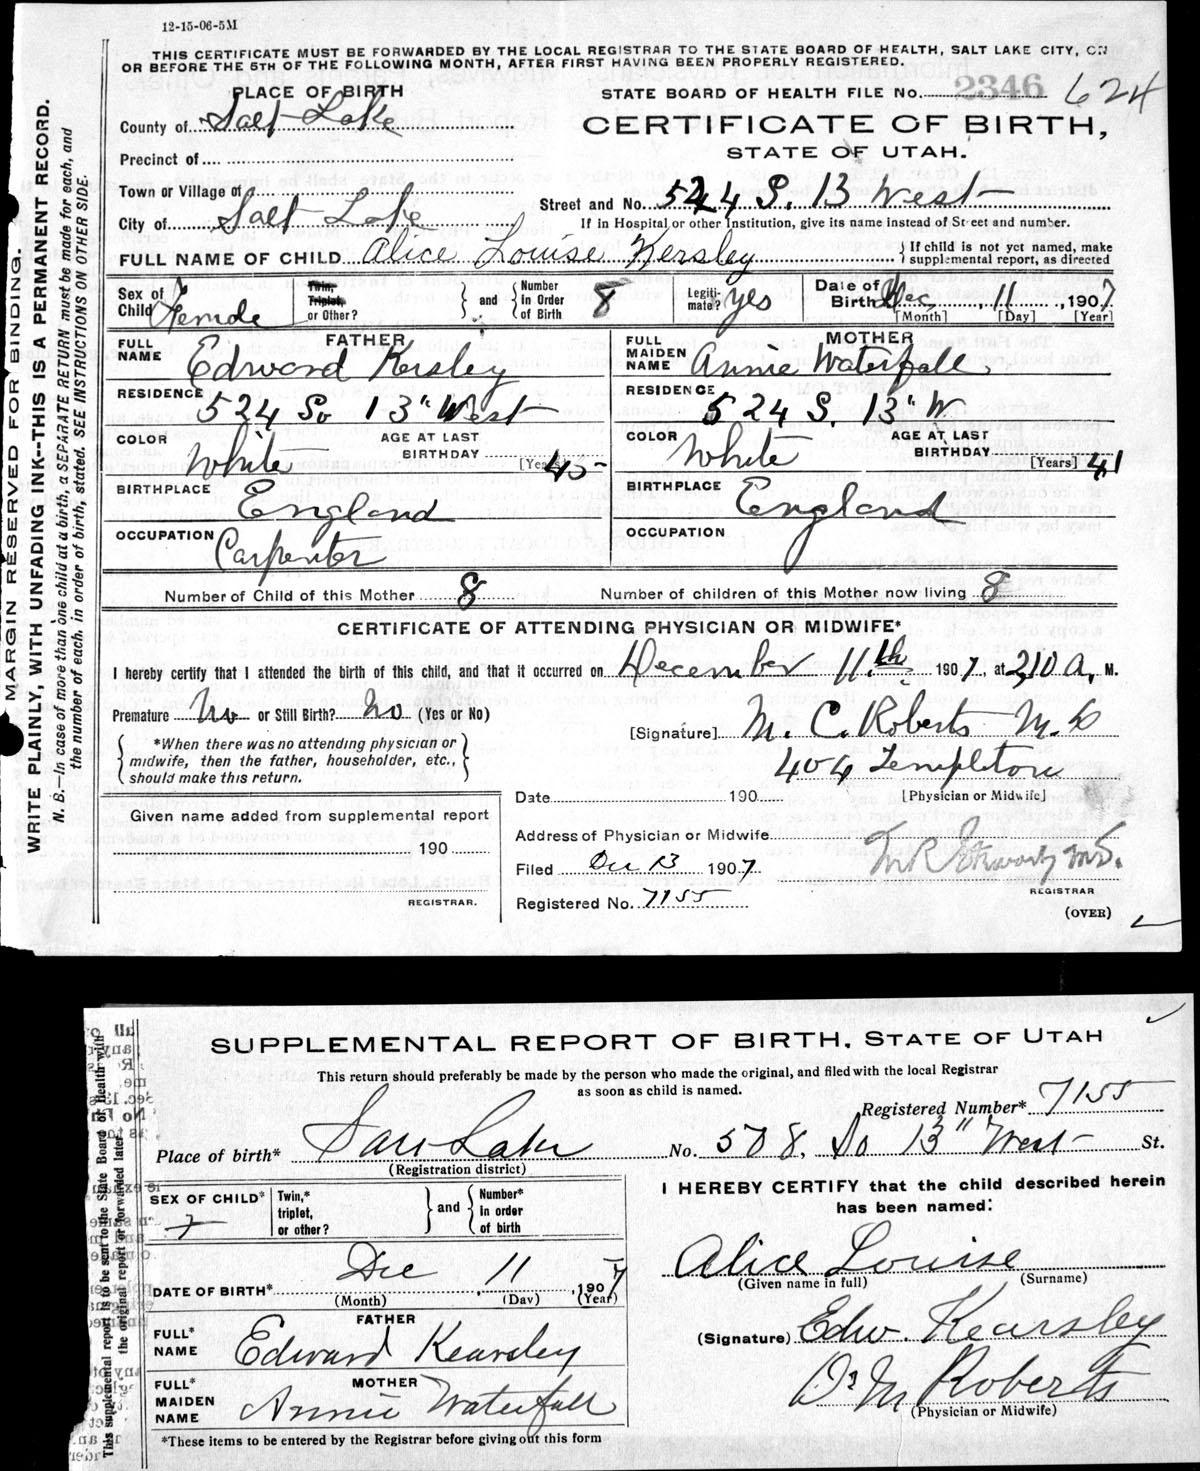 12-15-06-5M
THIS CERTIFICATE MUST BE FORWARDED BY THE LOCAL REGISTRAR TO THE STATE BOARD OF HEALTH, SALT LAKE CITY, ON
OR BEFORE THE 5TH OF THE FOLLOWING MONTH, AFTER FIRST HAVING BEEN PROPERLY REGISTERED.
MARGIN RESERVED FOR BINDING.
WRITE PLAINLY, WITH UNFADING INK--THIS IS A PERMANENT RECORD.
N. B.—In case of more than one child at a birth, a SEPARATE RETURN must be made for each, and
the number of each, in order of birth, stated. SEE INSTRUCTIONS ON OTHER SIDE.
PLACE OF BIRTH
County of Salt Lake
Precinct of
Town or Village of
City of Salt Lake
STATE BOARD OF HEALTH FILE No. 2346 624
CERTIFICATE OF BIRTH,
STATE OF UTAH.
Street and No. 524 S. 13 West
If in Hospital or other Institution, give its name instead of Street and number.
FULL NAME OF CHILD Alice Louise Kersley { If child is not yet named, make
supplemental report, as directed
Sex of Child Female
Twin, Triplet, or Other? } and { Number in Order of Birth 8
Legitimate? yes
Date of Birth Dec. 11, 1907
[Month] [Day] [Year]
FATHER
FULL NAME Edward Kersley
RESIDENCE 524 So 13" West
COLOR White AGE AT LAST BIRTHDAY [Years] 40
BIRTHPLACE England
OCCUPATION Carpenter
MOTHER
FULL MAIDEN NAME Annie Waterfall
RESIDENCE 524 S. 13" W
COLOR White AGE AT LAST BIRTHDAY [Years] 41
BIRTHPLACE England
OCCUPATION
Number of Child of this Mother 8 Number of children of this Mother now living 8
CERTIFICATE OF ATTENDING PHYSICIAN OR MIDWIFE*
I hereby certify that I attended the birth of this child, and that it occurred on December 11th, 1907, at 2,10 A. M.
Premature No or Still Birth? No (Yes or No)
{ *When there was no attending physician or
midwife, then the father, householder, etc.,
should make this return. }
[Signature] M. C. Roberts M.D
404 Templeton
Date 190 [Physician or Midwife]
Given name added from supplemental report
190
REGISTRAR.
Address of Physician or Midwife
Filed Dec 13 1907
Registered No. 7155
REGISTRAR
(OVER)
SUPPLEMENTAL REPORT OF BIRTH, STATE OF UTAH
This return should preferably be made by the person who made the original, and filed with the local Registrar
as soon as child is named.
This supplemental report is to be sent to the State Board of Health with
the original report or forwarded later
Registered Number* 7155
Place of birth* Salt Lake No. 508. So 13" West St.
(Registration district)
SEX OF CHILD* F
Twin,* triplet, or other? } and { Number* in order of birth
DATE OF BIRTH* Dec 11, 1907
(Month) (Day) (Year)
FATHER
FULL* NAME Edward Kearsley
MOTHER
FULL* MAIDEN NAME Annie Waterfall
*These items to be entered by the Registrar before giving out this form
I HEREBY CERTIFY that the child described herein
has been named:
Alice Louise
(Given name in full) (Surname)
(Signature) Edw. Kearsley
Dr M Roberts
(Physician or Midwife)